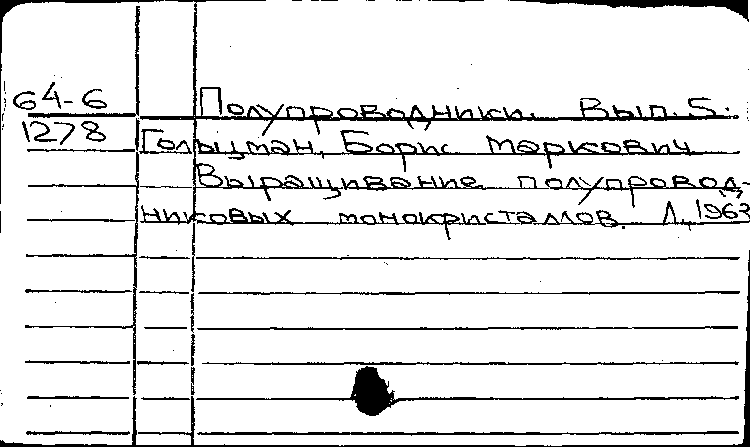 64-6 Полупроводники. Вып. 5.
1278 Гольцман, Борис Маркович
Выращивание полупровод-
никовых монокристаллов. Л., 1963